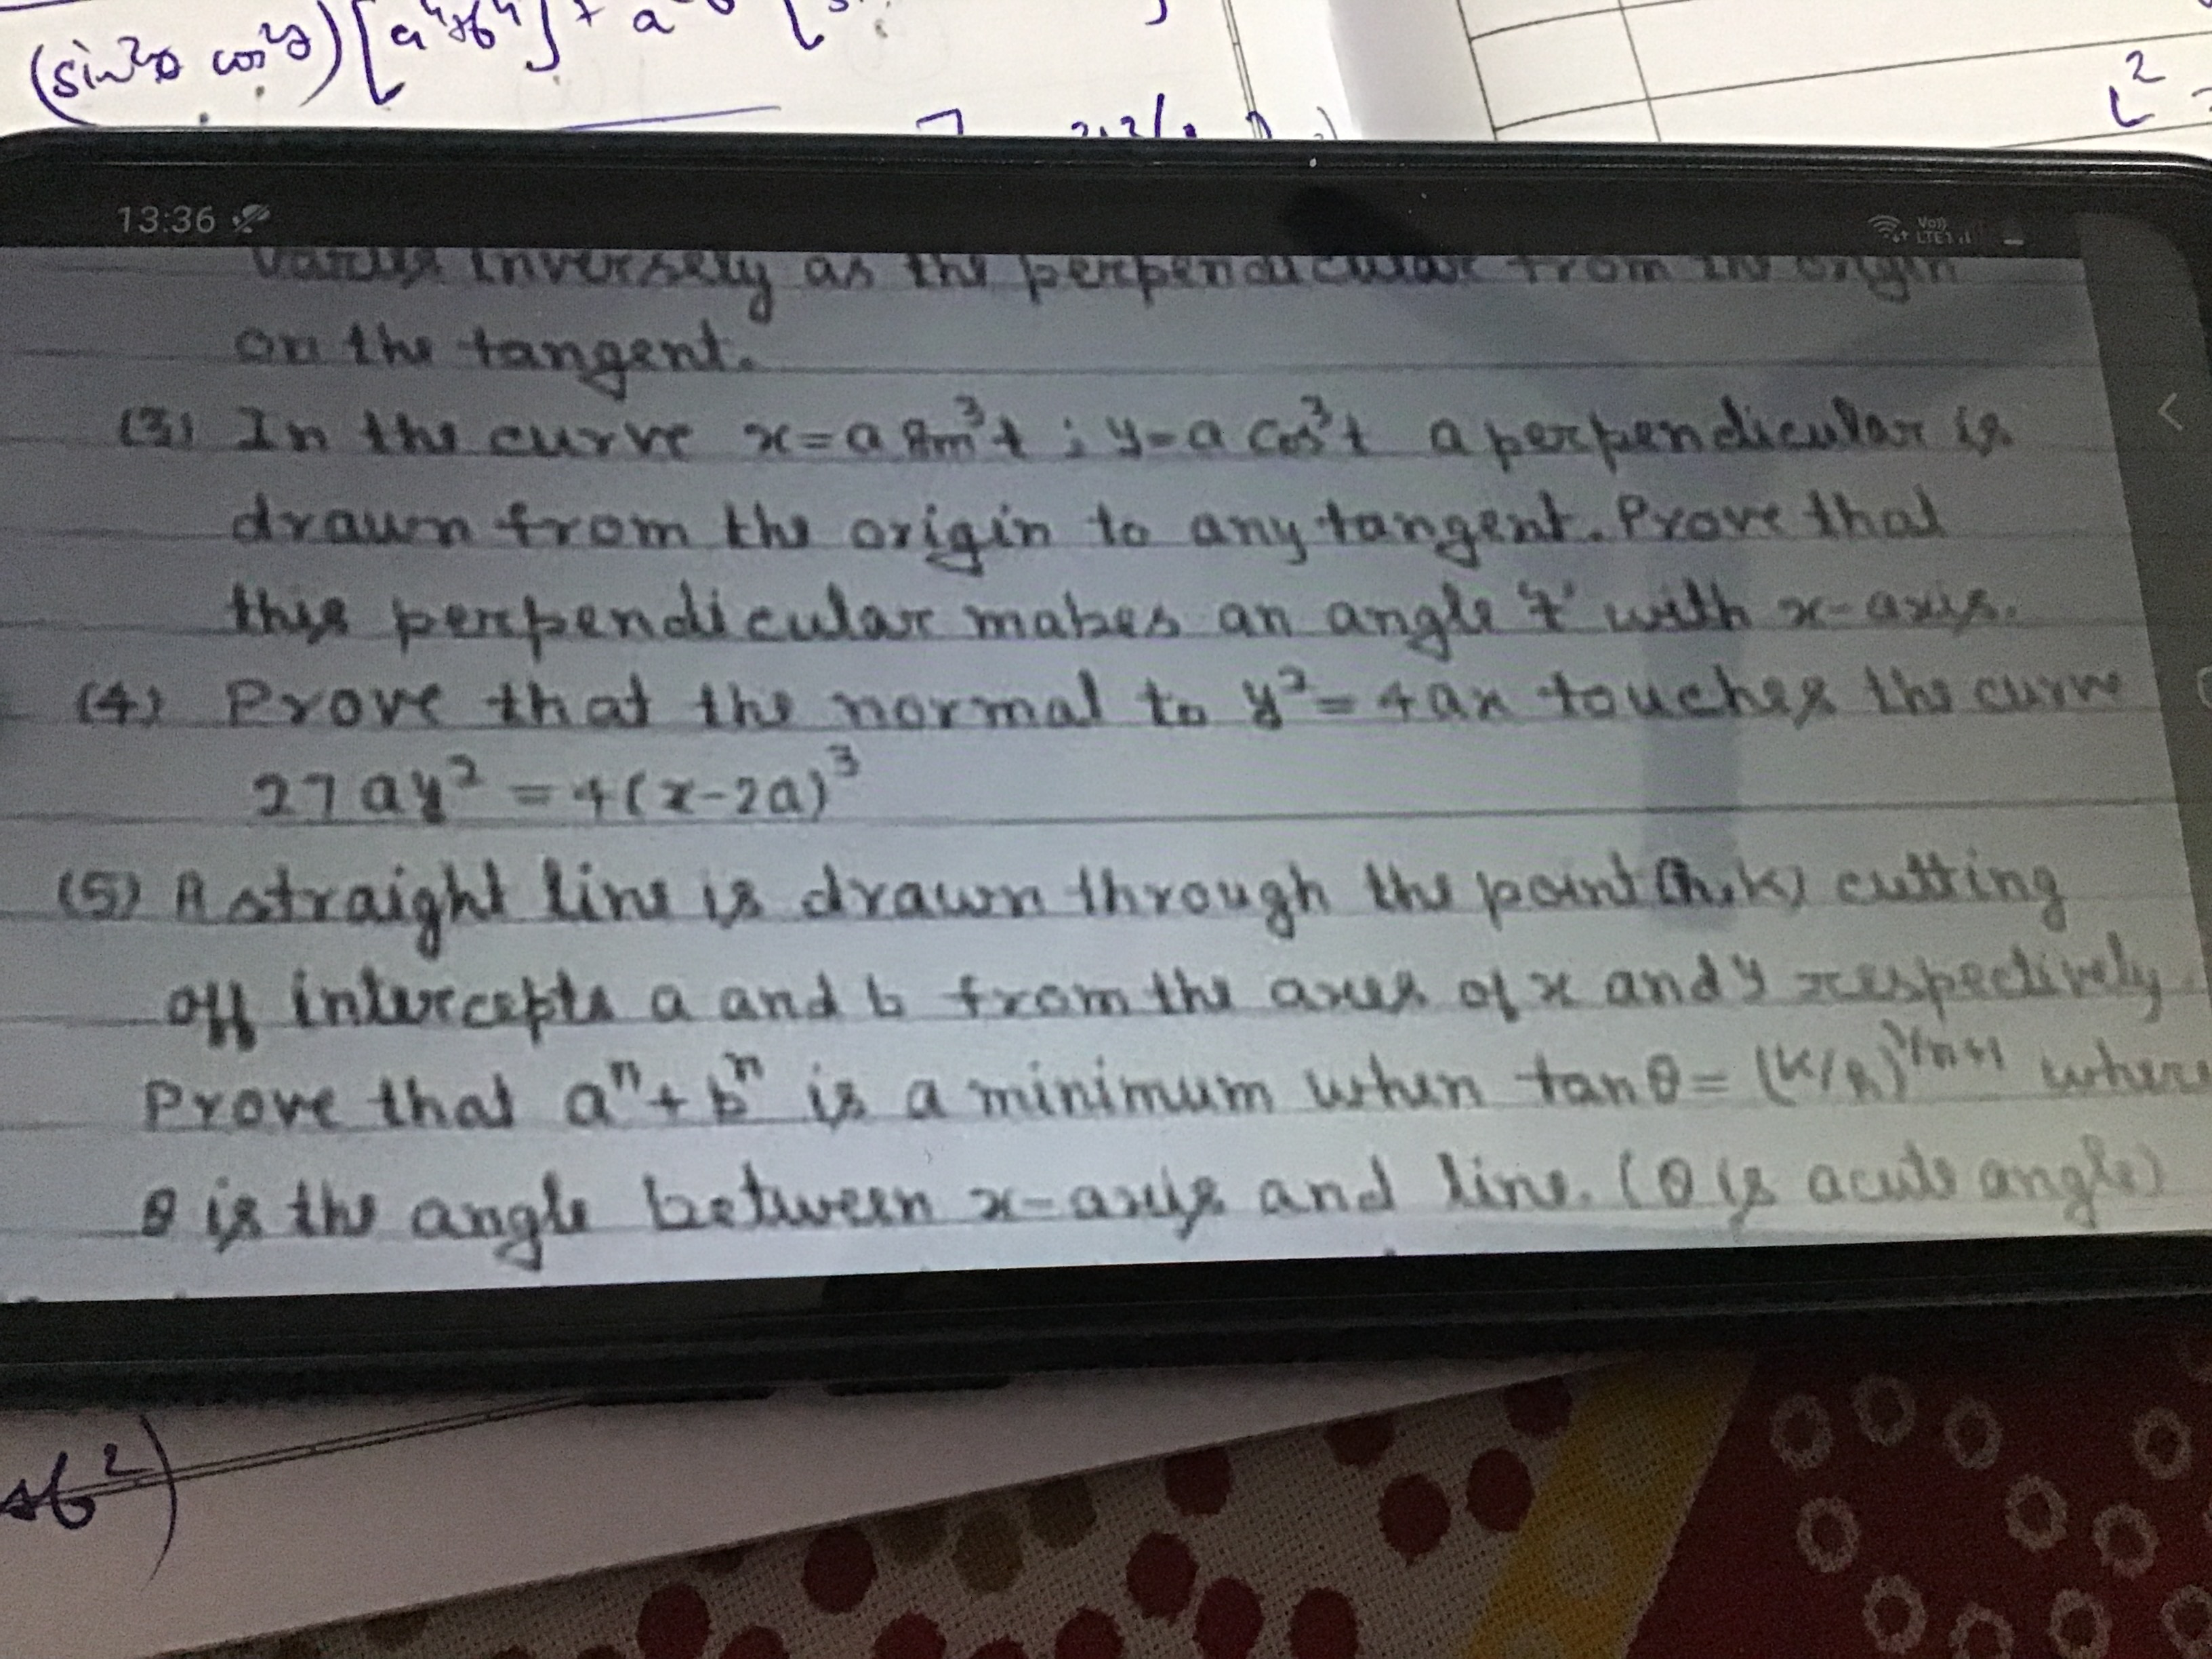 (sin²θ cos²θ) [a⁴+b⁴] + a
L²
13:36
Vo))
LTE1
varies inversely as the perpendicular from the origin
on the tangent.
(3) In the curve x=a sin³t ; y=a cos³t a perpendicular is
drawn from the origin to any tangent. Prove that
this perpendicular makes an angle 't' with x-axis.
(4) Prove that the normal to y²=4ax touches the curve
27ay² = 4(x-2a)³
(5) A straight line is drawn through the point (h,k) cutting
off intercepts a and b from the axes of x and y respectively.
Prove that aⁿ+bⁿ is a minimum when tanθ = (k/h)^1/n+1 where
θ is the angle between x-axis and line. (θ is acute angle)
+b²)